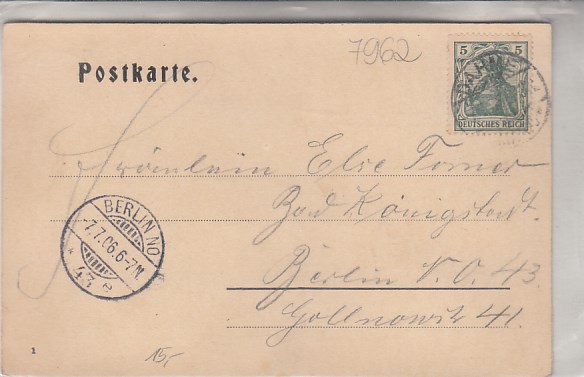 7962
Postkarte.
5 5
DEUTSCHES REICH
Fräulein Else
Bad Königstadt.
BERLIN NO
7.7.06.6-7N.
* 43 e
Berlin N.O. 43.
Gollnowstr 41.
1
15,-